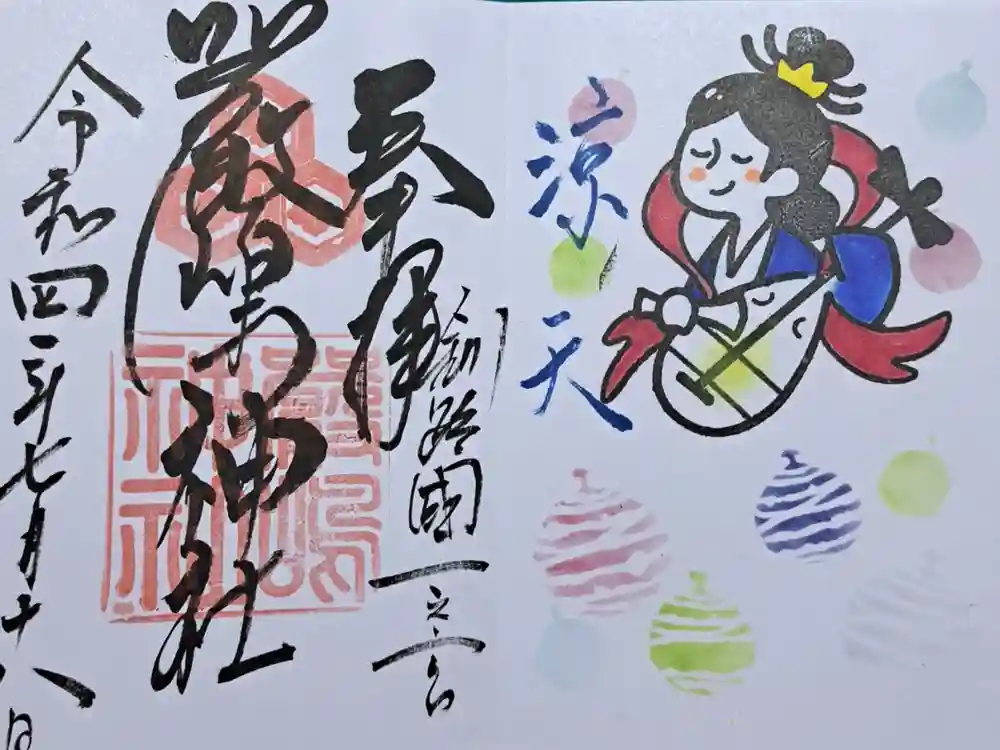 涼天
奉拝
釧路國一之宮
厳嶋神社
嚴嶋
神社
令和四年七月十八日